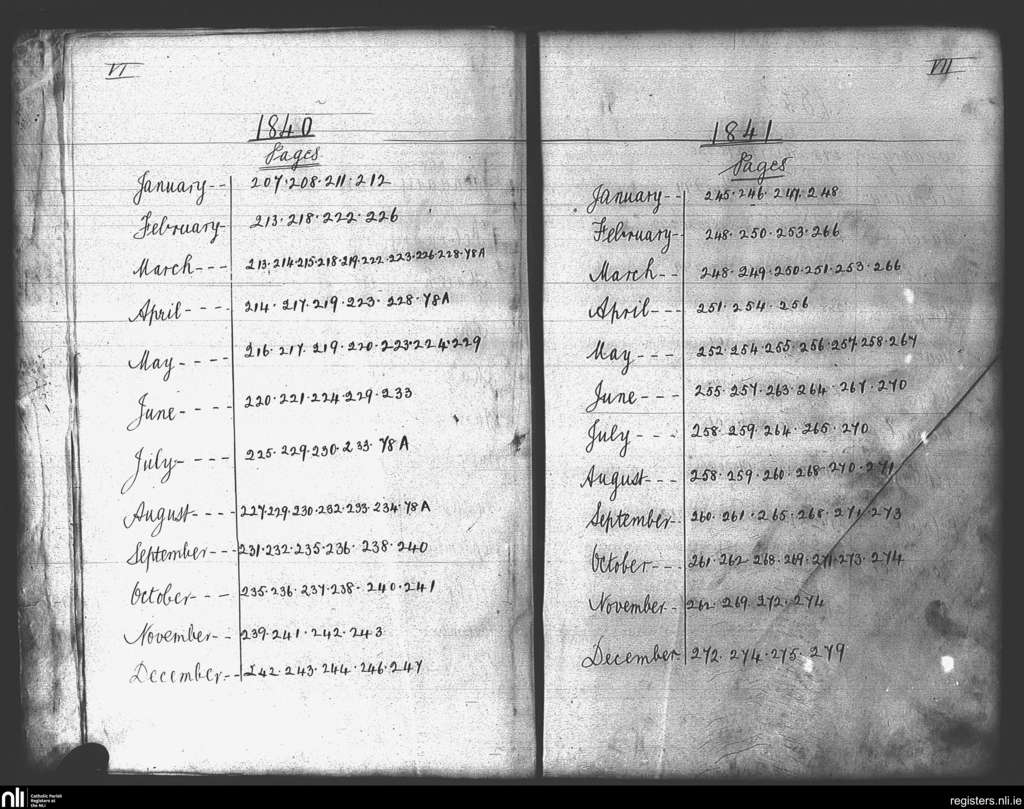 VI
1840
Pages
January-- 207·208·211·212
February- 213·218·222·226
March--- 213·214·215·218·219·222·223·226·228·78A
April---- 214·217·219·223·228·78A
May---- 216·217·219·220·223·224·229
June---- 220·221·224·229·233
July---- 225·229·230·233·78A
August---- 227·229·230·232·233·234·78A
September--- 231·232·235·236·238·240
October--- 235·236·237·238·240·241
November-- 239·241·242·243
December-- 242·243·244·246·247
VII
1841
Pages
January-- 245·246·247·248
February-- 248·250·253·266
March--- 248·249·250·251·253·266
April--- 251·254·256
May--- 252·254·255·256·257·258·267
June--- 255·257·263·264·267·270
July--- 258·259·264·265·270
August--- 258·259·260·268·270·271
September-- 260·261·265·268·271·273
October--- 261·262·268·269·271·273·274
November-- 262·269·272·274
December 272·274·275·279
nli
Catholic Parish
Registers at
the NLI
registers.nli.ie